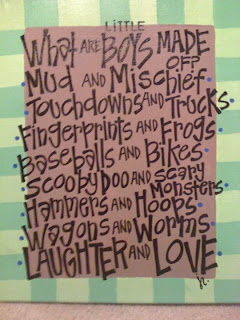 LiTTLE
What ARE BOYS MADE
OFF
Mud AND Mischief
Touchdowns AND Trucks
Fingerprints AND Frogs
Baseballs AND Bikes
Scooby Doo AND Scary
Monsters
Hammers AND Hoops
Wagons AND Worms
LAUGHTER AND LOVE